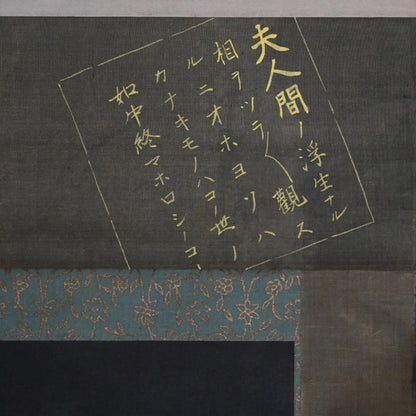 夫人間ノ浮生ナル
相ヲツラ〳〵觀ス
ルニオホヨソハ
カナキモノハコノ世ノ
始中終マホロシノコ